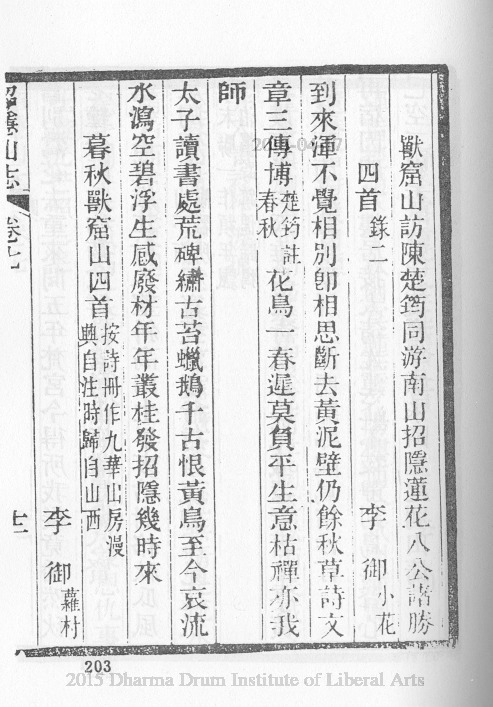 獸窟山訪陳楚筠同游南山招隱蓮花八公諸勝
四首錄二 李御小花
到來渾不覺相別卽相思斷去黃泥壁仍餘秋草詩文
章三傳博楚筠註春秋花鳥一春遲莫負平生意枯禪亦我
師
太子讀書處荒碑繡古苔蠟鵝千古恨黃鳥至今哀流
水瀉空碧浮生感廢材年年叢桂發招隱幾時來
暮秋獸窟山四首按詩冊作九華山房漫興自注時歸自山西
李御蘿村
招隱山志 卷七 十二
203
2015 Dharma Drum Institute of Liberal Arts